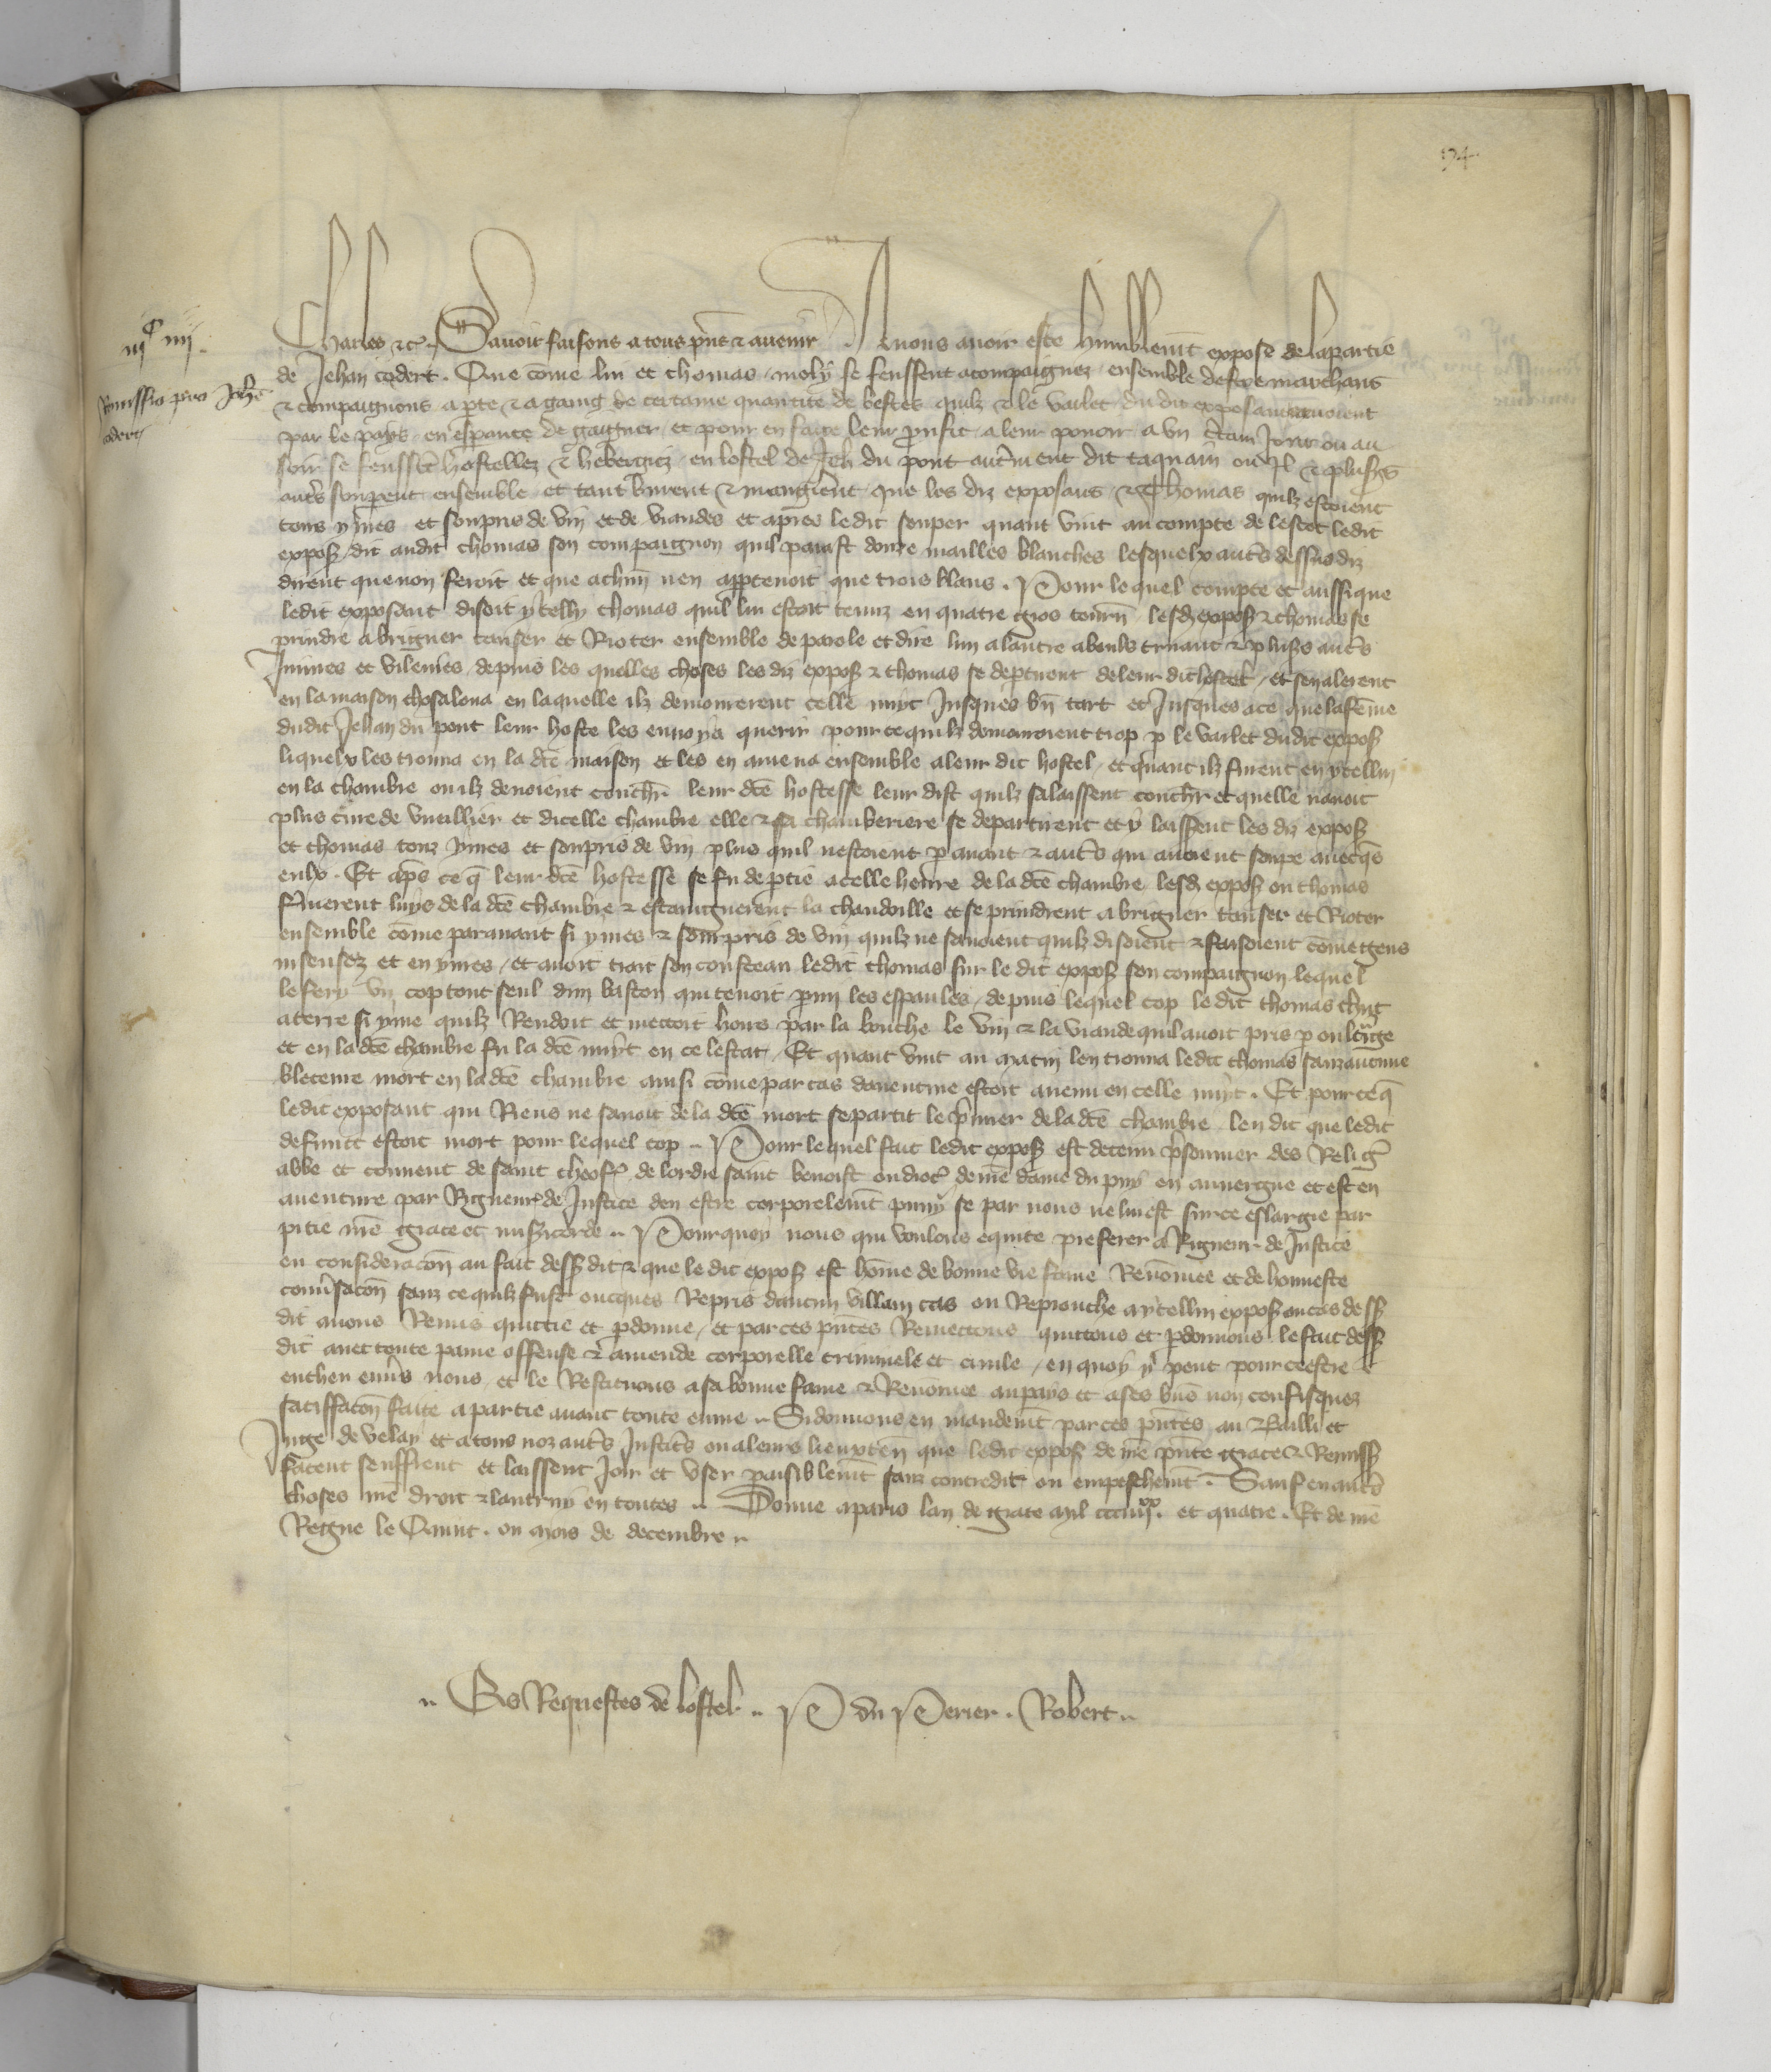 194
iijᶜ iiij.
Remissio pro Johē
codert
Charles etc. Savoir faisons a tous p̄ns ⁊ avenir A nous avoir esté humblemēt exposé de la partie
de Jehan codert. Que cōme lui et thomas moly se feussent acompaigniez ensemble destre marchans
⁊ compaignons a p̱te ⁊ a gaing de certaine quantité de bestes quilz ⁊ le varlet du dit exposant avoient
par le pays en esp̱ance de gaigner et pour en faire leur proufit a leur povoir a un c̃tain jour ou au
soir se feussēt hostellez ⁊ hebergiez en lostel de Jeh̄ du pont autrement dit taquain ou Il ⁊ plus̱s
aut̃s souperent ensemble et tant burent ⁊ mangierēt que les diz exposans ⁊ Thomas quilz estoient
tous yvres et soupris de vin et de viandes et apres le dit souper quant vint au compte de lescot ledit
expoß dit audit thomas son compaignon quil paiast douze mailles blanches lesquelx aut̃s dessusdiz
dirent que non feroit et que a chūn nen app̱tenoit que trois blans. Pour lequel compte et aussi que
ledit exposant disoit ycelly thomas quil lui estoit tenuz en quatre gros tourn̄ lesd̄ expoß ⁊ thomas se
prindre a briguer tanser et Rioter ensemble de parole et dire lun a lautre truant ⁊ plus̱s aut̃s
Iniures et vilenies depuis les quelles choses les diz expoß ⁊ thomas se dep̱tirent de leur dit hostel et sen alerent
en la maison chosalona en laquelle ilz demourerent celle nuyt Jusques bn̄ tart et Jusques a ce que la fēme
dudit Jehan du pont leur hoste les envoya querir pour ce quilz demouroient trop p̱ le varlet dudit expoß
liquelx les trouva en la dc̄e maison et les en amena ensemble a leur dit hostel et quant ilz furent en ycellui
en la chambre ou ilz devoient couchr̄ leur dc̄e hostesse leur dist quilz salaissent couchr̄ et quelle navoit
plus cure de vueillier et dicelle chambre elle ⁊ sa chamberiere se departirent et y laisserent les diz expoß
et thomas touz yvres et soupris de vin plus quil nestoient p̱ avant ⁊ aut̃s qui avoient soupé avecqs̄
eulx. Et ap̄s ce q̄ leur dc̄e hostesse se fu dep̱tie a celle heure de la dc̄e chambre lesd̄ expoß ou thomas
fermerent luys de la dc̄e chambre ⁊ estaingnerent la chandoille et se prindrent a briguer tanser et Rioter
ensemble cōme paravant si yvres ⁊ sourpris de vin quilz ne savoient quilz disoient ⁊ faisoient cōme gens
insensez et en yvres et avoit trait son coustean ledit thomas sur le dit expoß son compaignon lequel
le fery un cop tout seul dun baston qui tenoit p̱mi les espaules depuis lequel cop ledit thomas chut
a terre si yvre quilz Rendoit et mectoit hors par la bouche le vin ⁊ la viande quil avoit pris
et en la dc̄e chambre fu la dc̄e nuyt en ce lestat. Et quant vint au matin len trouva ledit thomas sanz aucune
bleceure mort en la dc̄e chambre ainsi cōme par cas daventure estoit avenu en celle nuyt. Et pour ce q̄
ledit exposant qui Riens ne savoit de la dc̄e mort se partit le p̃mier de la dc̄e chambre len dit que ledit
defunct estoit mort pour lequel cop. Pour lequel fait ledit expoß est detenu p̃sonnier des Relig̃
abbé et convent de saint theofr̃ de lordre saint benoist ou dioc̃ de nr̄e dame du puy en auvergne et est en
aventure par Rigueur de Justice den estre corporelemēt pugny se par nous ne lui est sur ce eslargie par
pitié nr̄e grace et misericorde. Pourquoy nous qui voulons equite preferer a Rigueur de Justice
en consideracōn au fait dess̱ dit ⁊ que le dit expoß est hōme de bonne vie fame Renōmee et de honneste
conv̄sacōn sanz ce quilz fust oncques Repris daucun villain cas ou Reprouche a ycellui expoß ou cas dess̱
dit avons Remis quittie et p̱donné et par ces p̄ntes Remectons quictons et p̱donnons le fait dess̱
dit avec toute paine offense ⁊ amende corporelle criminele et civile en quoy y peut pour ce estre
encheu env̄s nous et le Restituons a sa bonne fame ⁊ Renōmee au pays et a ses biēs non confisquez
satiffacōn faite a partie avant toute euvre. Si donnons en mandemēt par ces p̄ntes au Bailli et
Juge de velay et a tous noz aut̃s Justic̃s ou a leurs lieuxten̄ que ledit expoß de nr̄e p̄nte grace ⁊ Remiss̱
facent seuffrent et laissent Joir et user paisiblemēt sanz contredit ou empeschemēt. Sauf en aut̃s
choses nr̄e droit ⁊ lautruy en toutes. Donné a paris lan de grace mil ccc iiijˣˣ. et quatre. Et de nr̄e
Regne le Quint. ou mois de decembre
Es Requestes de lostel. P du Perier. Robert